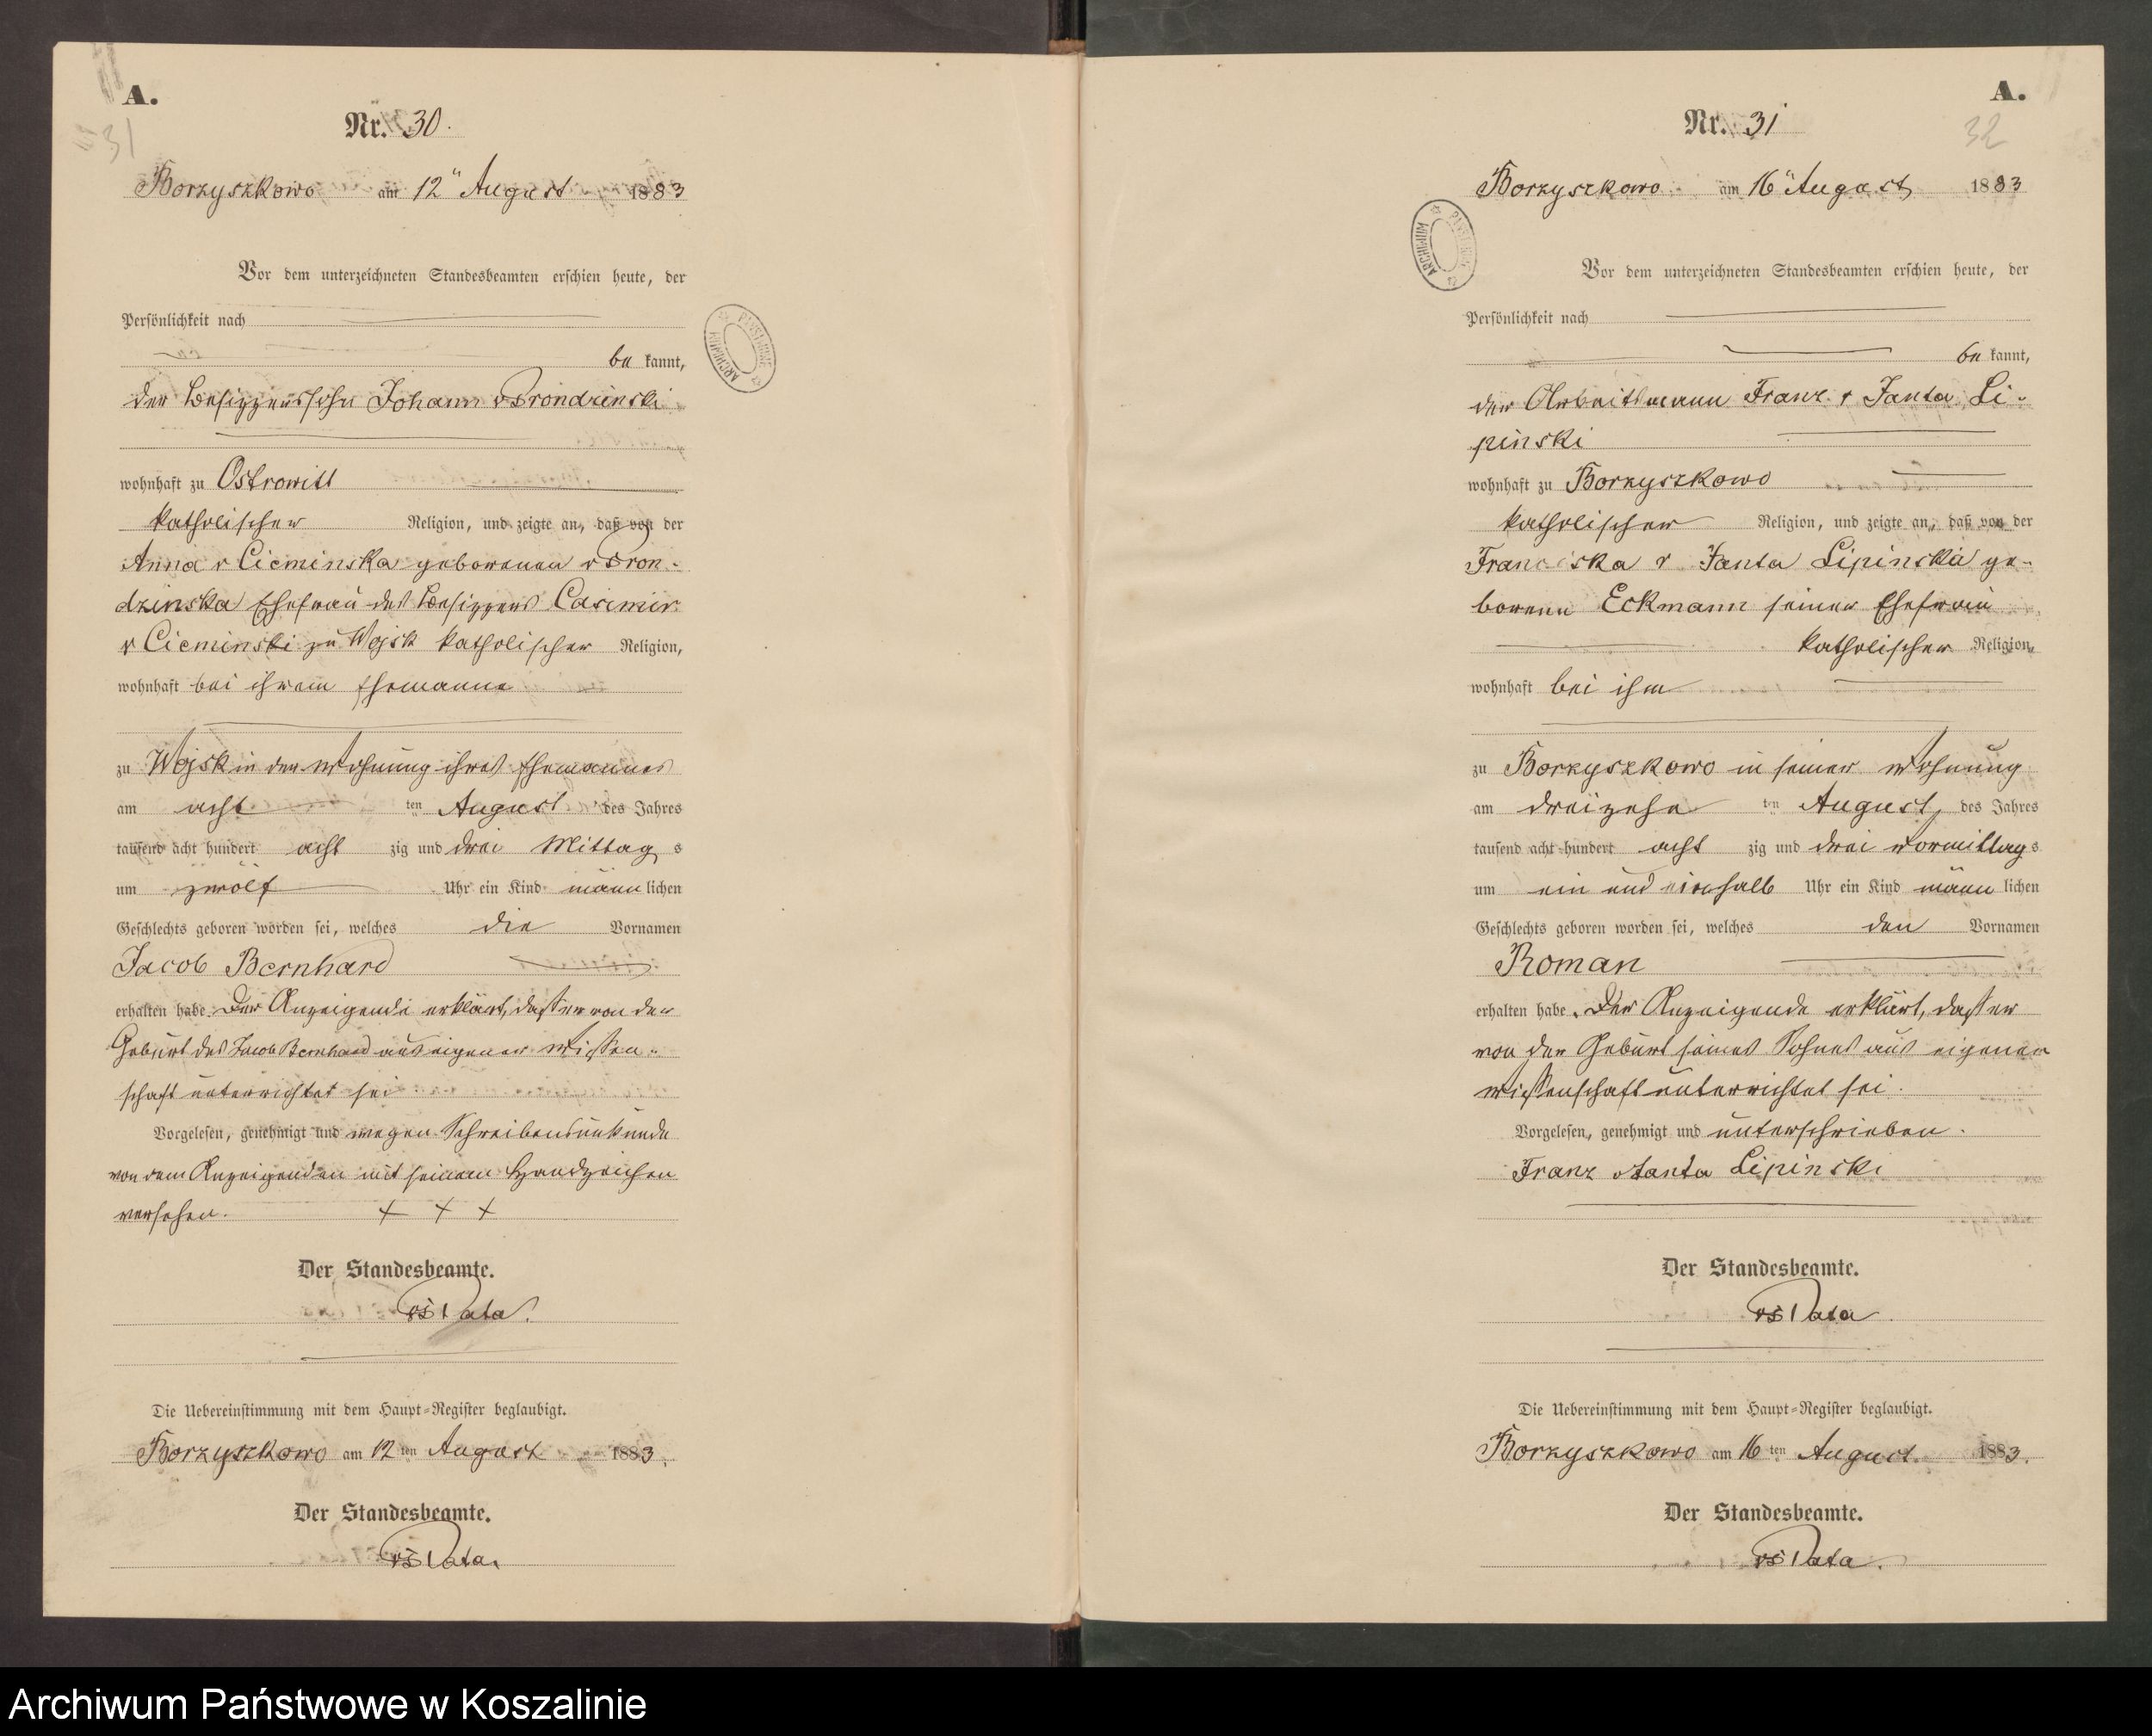 A.
31
Nr. 30.
Borzyszkowo am 12" August 1883
Vor dem unterzeichneten Standesbeamten erschien heute, der
Persönlichkeit nach
be kannt,
der Besitzerssohn Johann v Prondzinski
wohnhaft zu Ostrowitt
katholischer Religion, und zeigte an, daß von der
Anna v Cieminska geborenen v Pron-
dzinska Ehefrau des Besitzers Casimir
v Cieminski zu Wojsk katholischer Religion,
wohnhaft bei ihrem Ehemanne
zu Wojsk in der Wohnung ihres Ehemannes
am acht ten August des Jahres
tausend acht hundert acht zig und drei Mittag s
um zwölf Uhr ein Kind männ lichen
Geschlechts geboren worden sei, welches die Vornamen
Jacob Bernhard
erhalten habe. Der Anzeigende erklärt, daß er von der
Geburt des Jacob Bernhard aus eigener Wissen-
schaft unterrichtet sei
Vorgelesen, genehmigt und wegen Schreibensunkunde
von dem Anzeigenden mit seinem Handzeichen
versehen. + + +
Der Standesbeamte.
Data.
Die Uebereinstimmung mit dem Haupt-Register beglaubigt.
Borzyszkowo am 12 ten August 1883.
Der Standesbeamte.
Data.
ARCHIWUM PAŃSTWOWE
A.
32
Nr. 31
Borzyszkowo am 16" August 1883
Vor dem unterzeichneten Standesbeamten erschien heute, der
Persönlichkeit nach
be kannt,
der Arbeitsmann Franz v Janta Li-
pinski
wohnhaft zu Borzyszkowo
katholischer Religion, und zeigte an, daß von der
Franciska v Janta Lipinska ge-
borene Eckmann seiner Ehefrau
katholischer Religion,
wohnhaft bei ihm
zu Borzyszkowo in seiner Wohnung
am dreizehn ten August des Jahres
tausend acht hundert acht zig und drei Vormittag s
um ein und einhalb Uhr ein Kind männ lichen
Geschlechts geboren worden sei, welches den Vornamen
Roman
erhalten habe. Der Anzeigende erklärt, daß er
von der Geburt seines Sohnes aus eigener
Wissenschaft unterrichtet sei.
Vorgelesen, genehmigt und unterschrieben.
Franz v Janta Lipinski
Der Standesbeamte.
Data
Die Uebereinstimmung mit dem Haupt-Register beglaubigt.
Borzyszkowo am 16 ten August 1883.
Der Standesbeamte.
Data.
ARCHIWUM PAŃSTWOWE
Archiwum Państwowe w Koszalinie